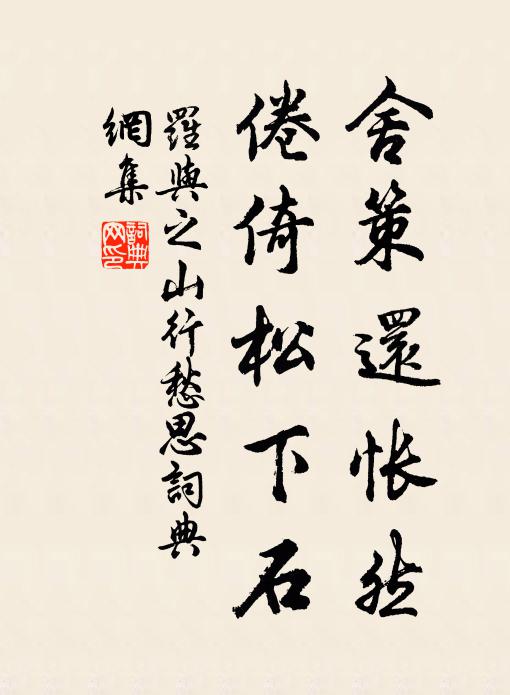 舍策還悵然
倦倚松下石
羅與之山行愁思詞典
網集
詞典
网印